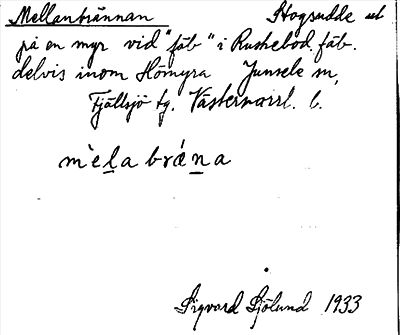 Mellanbrännan Skogsudde ut
på en myr vid "fäb" i Ruskebod. fäb.
delvis inom Hömyra Junsele sn,
Fjällsjö tg. Västernorrl. l.
mèl̲a brǽn̲a
Sigvard Sjölund 1933